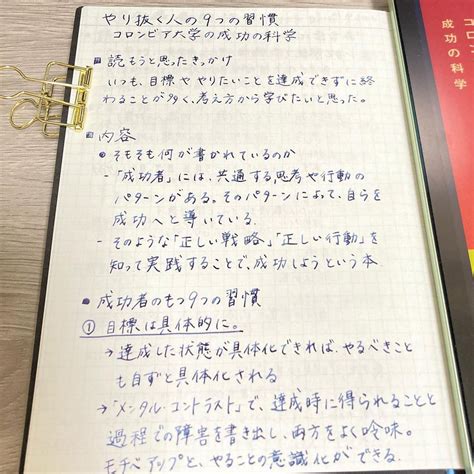 やり抜く人の9つの習慣
コロンビア大学の成功の科学
読もうと思ったきっかけ
いつも、目標ややりたいことを達成できずに終
わることが多く、考え方から学びたいと思った。
内容
そもそも何が書かれているのか
-「成功者」には、共通する思考や行動の
パターンがある。そのパターンによって、自らを
成功へと導いている.
- そのような「正しい戦略」「正しい行動」を
知って実践することで、成功しようという本
成功者のもつ9つの習慣
① 目標は具体的に。
→達成した状態が具体化できれば、やるべきこと
も自ずと具体化される
→「メンタル・コントラスト」で、達成時に得られることと
過程での障害を書き出し、両方をよく吟味。
モチベアップと、やることの意識化ができる.
コロン
成功の科学